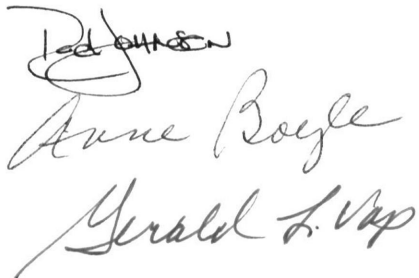 Rod Johnson
Anne Boyle
Gerald L. Vap